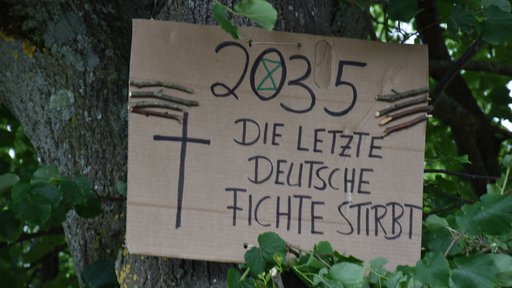 2035
DIE LETZTE
DEUTSCHE
FICHTE STIRBT